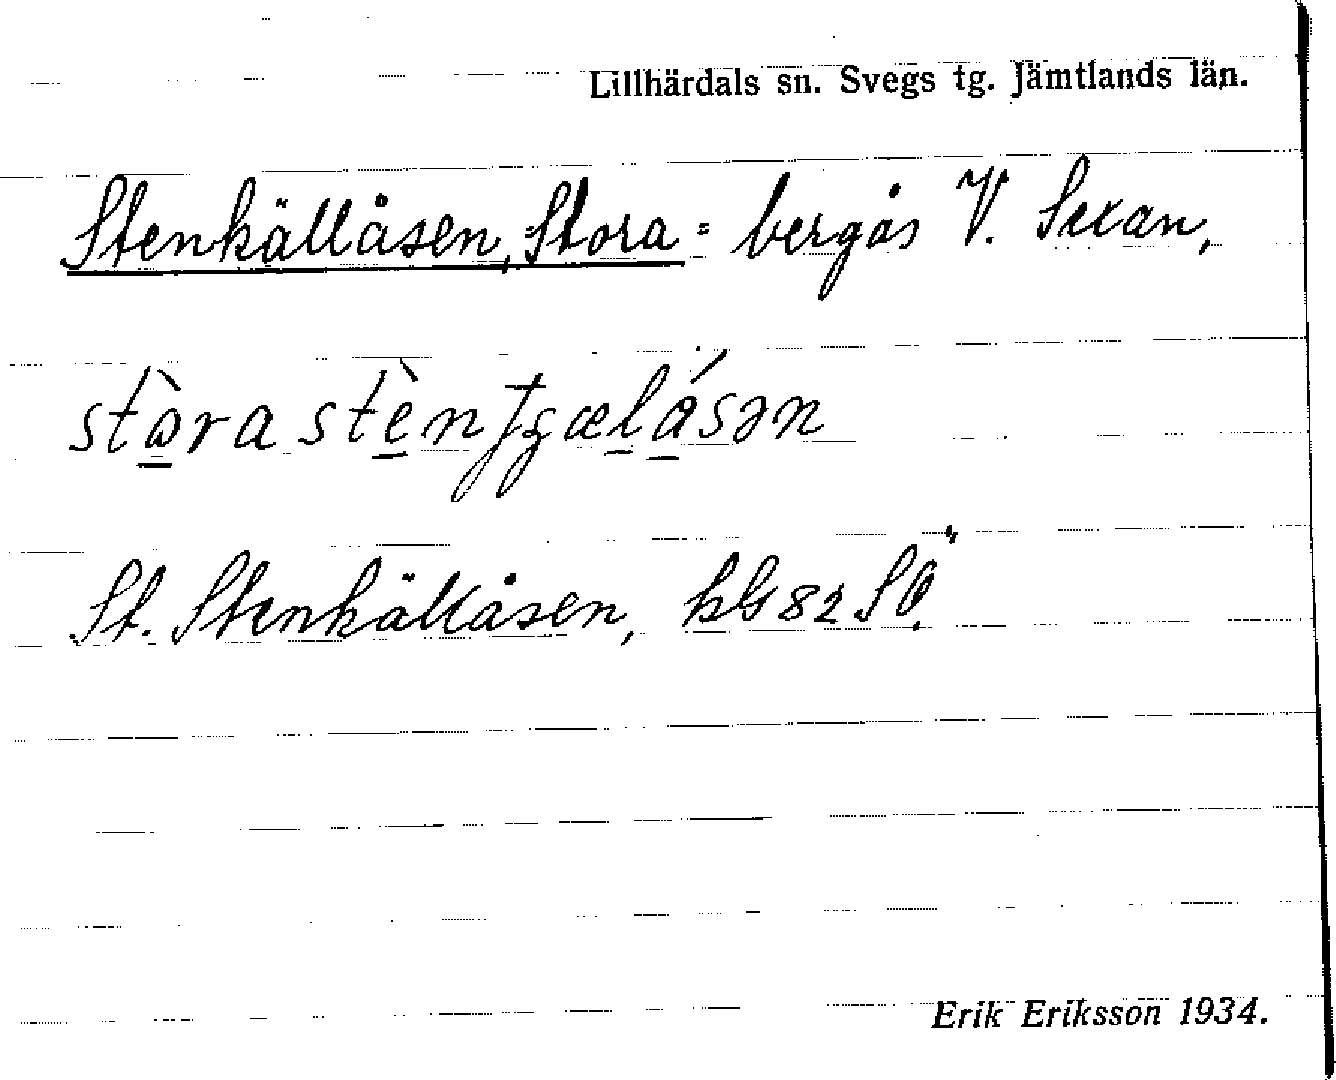 Lillhärdals sn. Svegs tg. Jämtlands län.
Stenkällåsen, Stora = bergås V. Sexan,
St. Stenkällåsen, kbl 82 SÖ.
Erik Eriksson 1934.